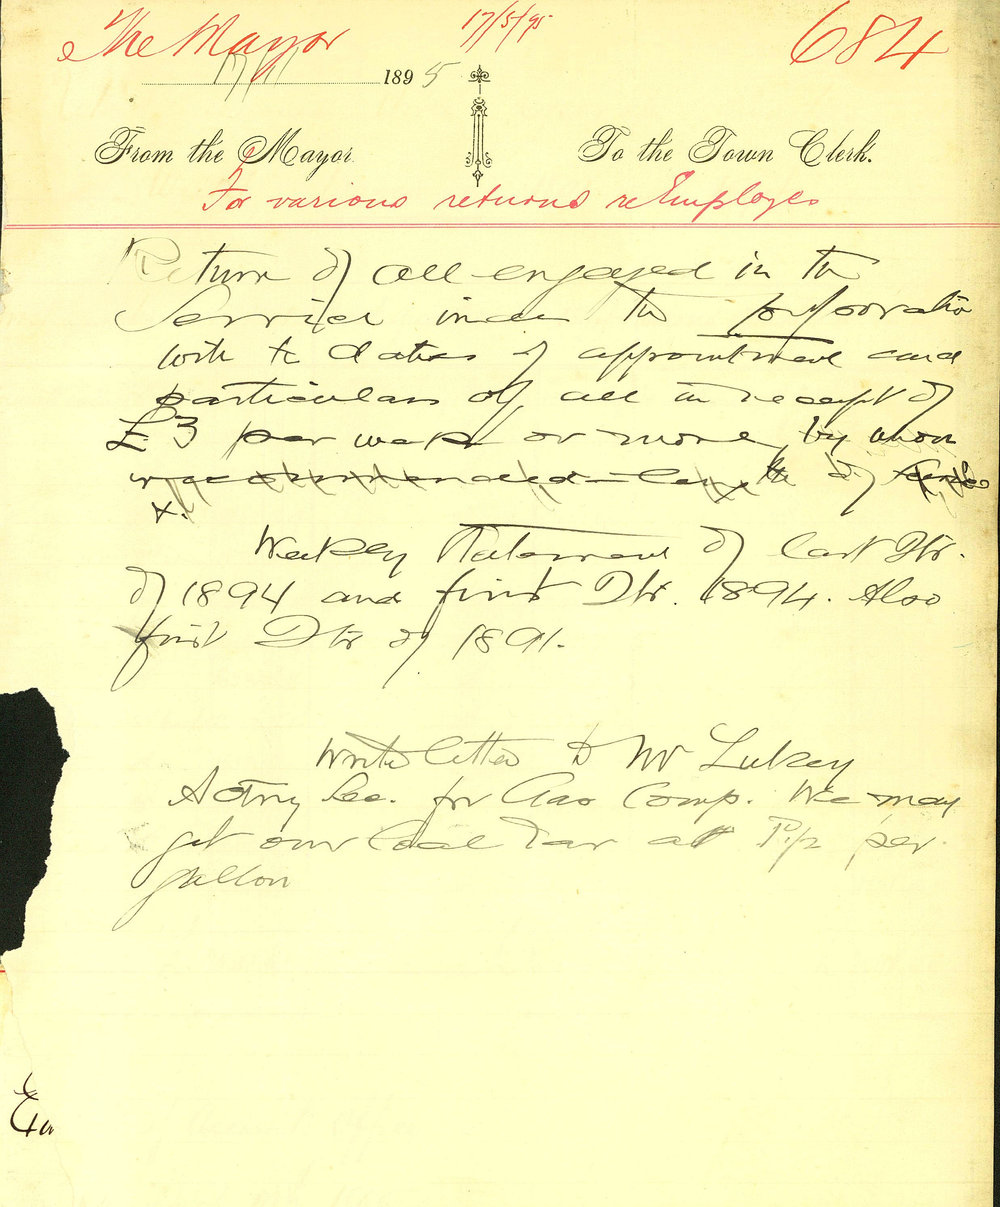 The Mayor 17/5/95 684
17/5/1895
From the Mayor To the Town Clerk.
For various returns re Employes
Return of all engaged in the
Service under the Corporation
with the dates of appointment and
particulars of all in receipt of
£3 per week or more, by whom
recommended length of
x.
Weekly Statement of last Qtr.
of 1894 and first Qtr. 1894. Also
first Qtr of 1891.
Write letter to Mr Lukey
Acting Sec. for Gas Comp. We may
get our Coal Tar at per
gallon